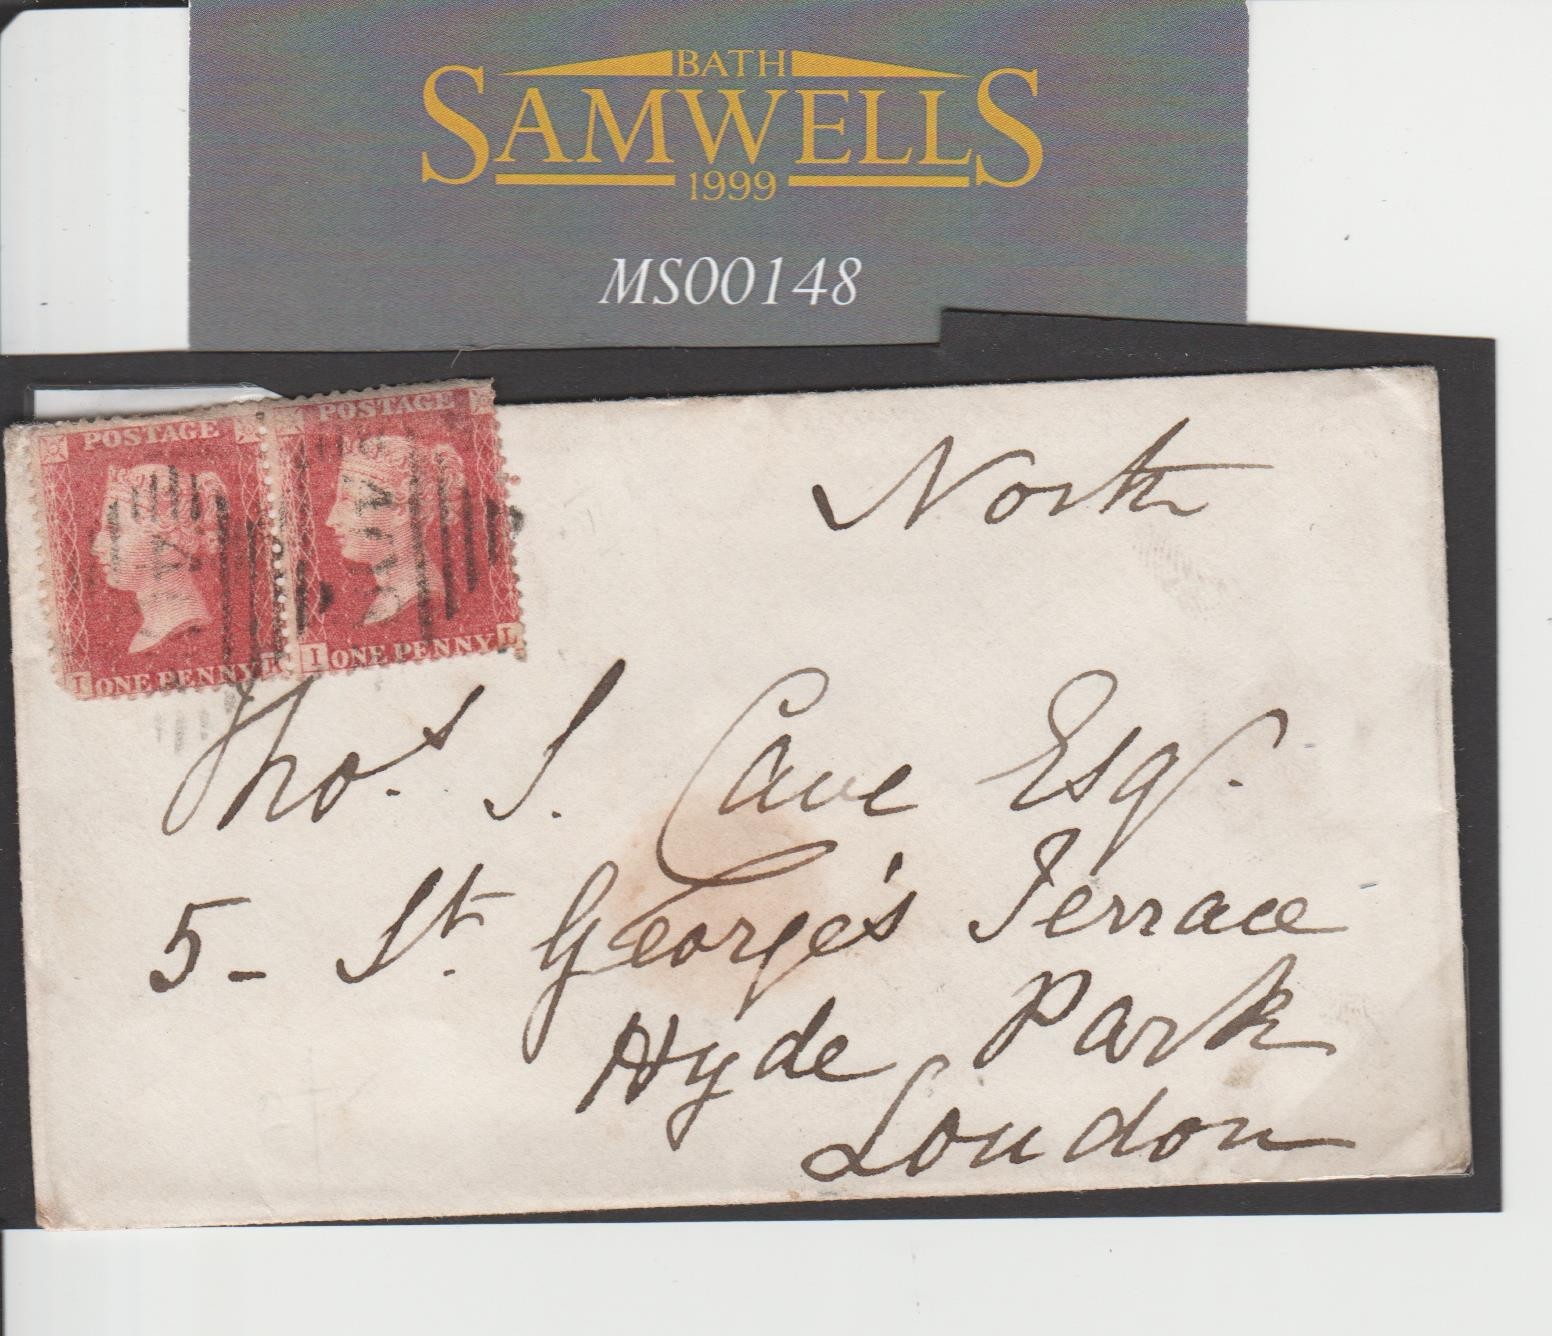 BATH
SAMWELLS
1999
MS00148
POSTAGE
I ONE PENNY L
POSTAGE
I ONE PENNY L
North
Thos. S. Cave Esqr.
5- St. George's Terrace
Hyde Park
London